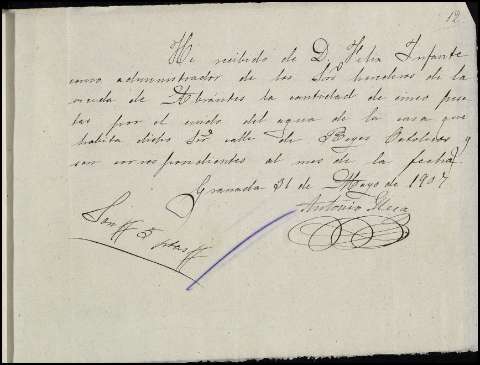 12
He recibido de D. Felix Infante
como administrador de los Sres herederos de la
viuda de Abrantes la cantidad de cinco pese
tas por el caudo del agua de la casa que
habita dicho Sr. calle de Reyes Catolicos y
son correspondientes al mes de la fecha
Granada 31 de Mayo de 1907
Antonio
Son 5 ptas